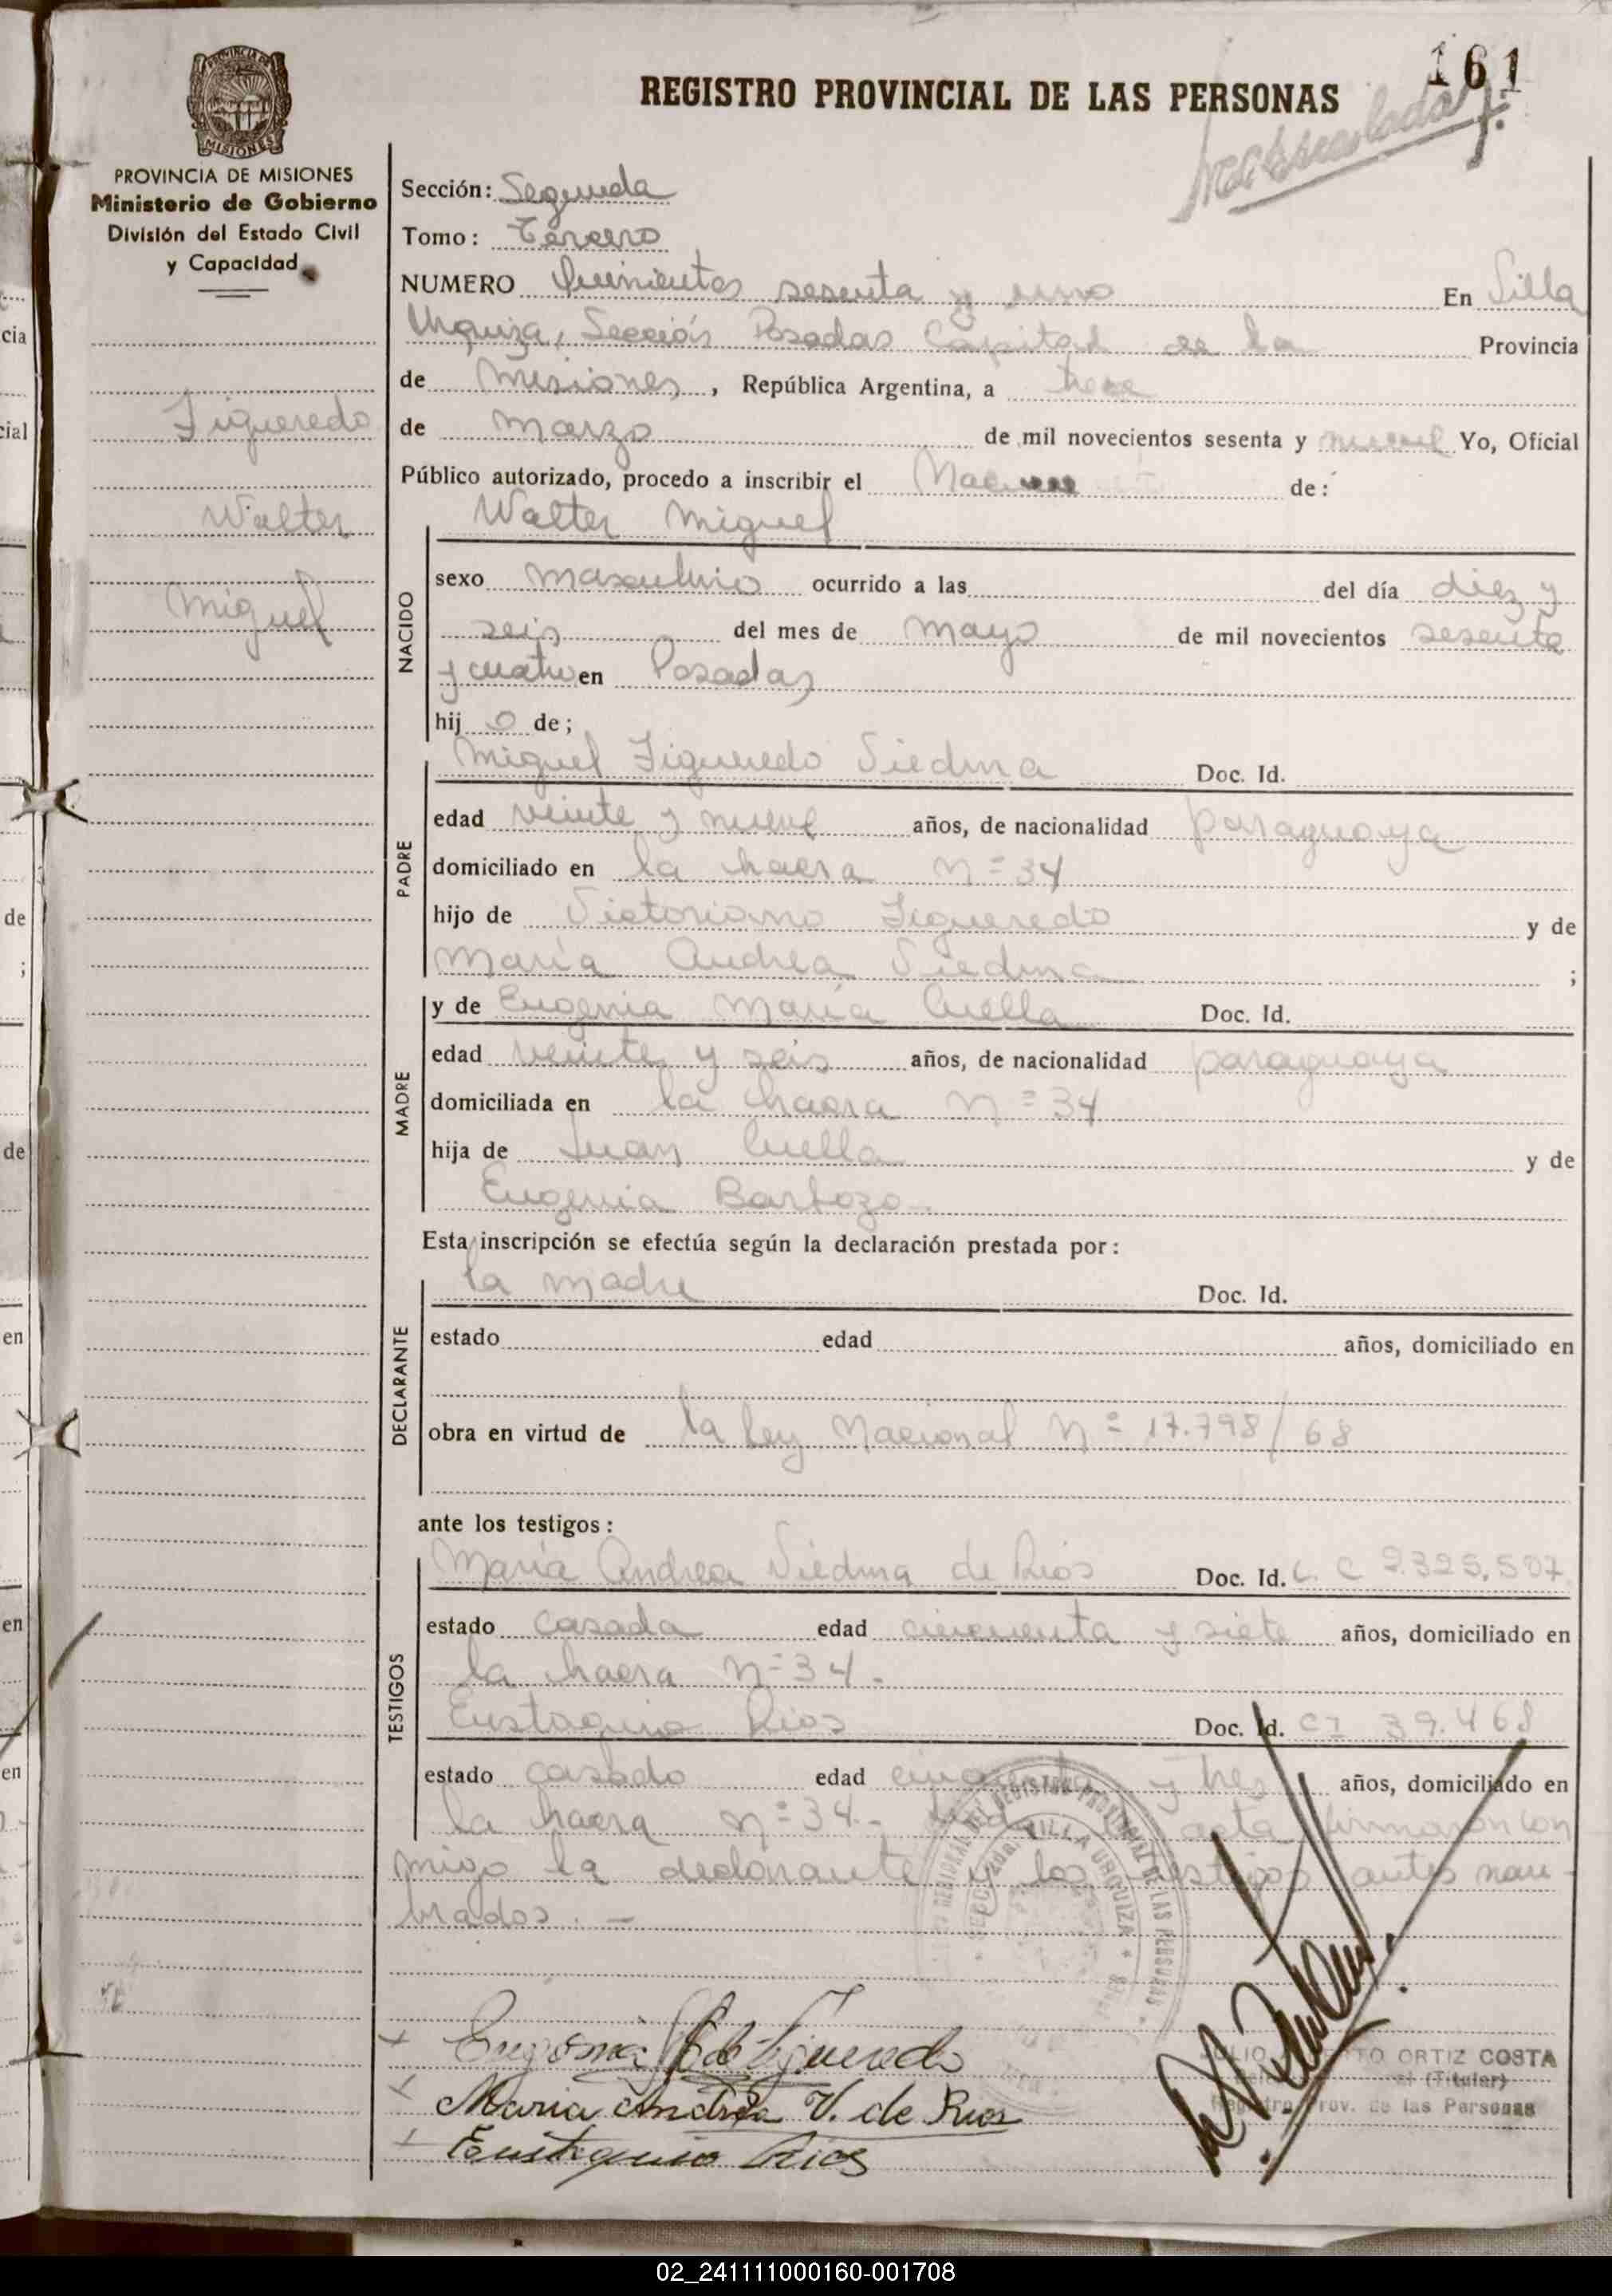 161
REGISTRO PROVINCIAL DE LAS PERSONAS
PROVINCIA DE MISIONES
Ministerio de Gobierno
División del Estado Civil
y Capacidad
Figueredo
Walter
Miguel
Sección: Segunda
Tomo: Tercero
NUMERO Quinientos sesenta y uno En Villa
Urquiza, Sección Posadas Capital de la Provincia
de Misiones, República Argentina, a trece
de marzo de mil novecientos sesenta y nueve Yo, Oficial
Público autorizado, procedo a inscribir el de:
Walter Miguel
NACIDO
sexo masculino ocurrido a las del día diez y
seis del mes de mayo de mil novecientos sesenta
y cuatro en Posadas
hij o de;
PADRE
Miguel Figueredo Viedma Doc. Id.
edad veinte y nueve años, de nacionalidad paraguaya
domiciliado en la hacra n= 34
hijo de Victoriano Figueredo y de
María Andrea Viedma ;
MADRE
y de Eugenia María Cuella Doc. Id.
edad veinte y seis años, de nacionalidad paraguaya
domiciliada en la chacra n= 34
hija de Juan Cuella y de
Eugenia Barboza
Esta inscripción se efectúa según la declaración prestada por:
DECLARANTE
la madre Doc. Id.
estado edad años, domiciliado en
obra en virtud de la Ley Nacional N= 17.798/68
ante los testigos:
TESTIGOS
María Andrea Viedma de Rios Doc. Id. L. C 2.325.507
estado casada edad cincuenta y siete años, domiciliado en
la hacra n=34.
Eustaquio Rios Doc. Id. CI 39.468
estado casado edad cincuenta y tres años, domiciliado en
la hacra n=34.- acta firmaron con
migo la declarante y los testigos antes nom-
brados. -
REGISTRO PROVINCIAL DE LAS PERSONAS
VILLA URQUIZA
Eugenia de Figueredo
Maria Andrea V. de Rios
Eustaquio Rios
ORTIZ COSTA
(Titular)
Registro Prov. de las Personas
02_241111000160-001708